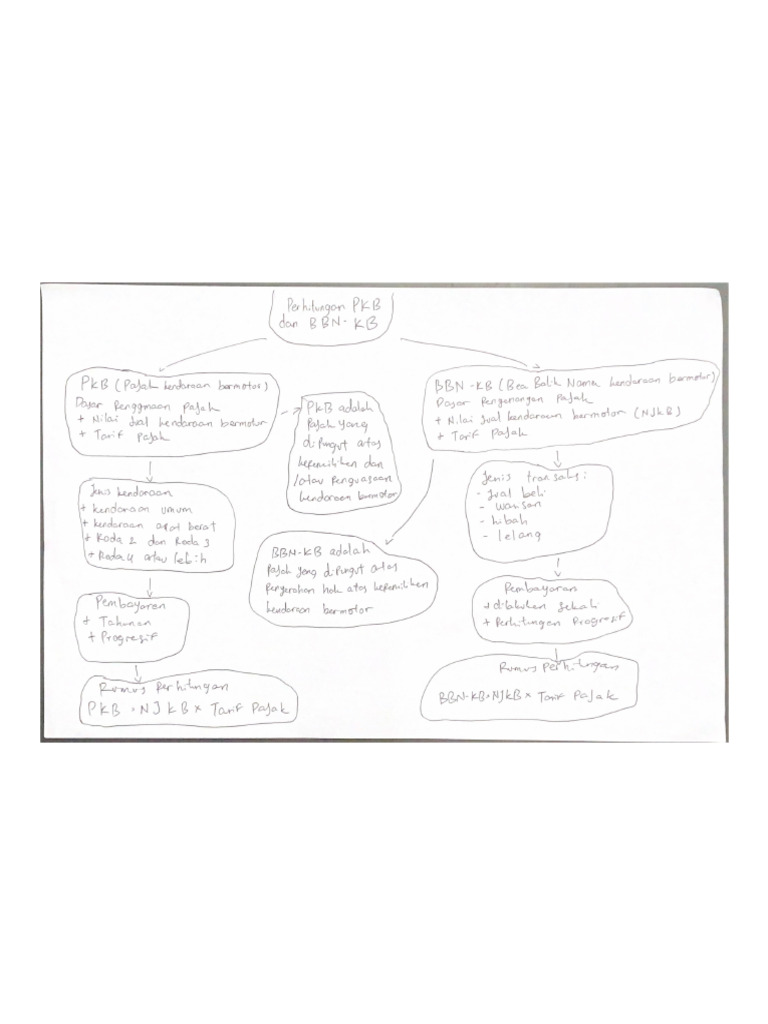 Perhitungan PKB
dan BBN-KB
PKB (Pajak kendaraan bermotor)
Dasar Penggunaan Pajak
+ Nilai Jual kendaraan bermotor
+ Tarif Pajak
PKB adalah
Pajak yang
dipungut atas
kepemilikan dan
/atau Penguasaan
kendaraan bermotor
BBN-KB (Bea Balik Nama kendaraan bermotor)
Dasar Pengenangan Pajak
+ Nilai Jual kendaraan bermotor (NJKB)
+ Tarif Pajak
Jenis kendaraan
+ kendaraan umum
+ kendaraan alat berat
+ Roda 2 dan Roda 3
+ Roda 4 atau lebih
Jenis transaksi:
- Jual beli
- warisan
- hibah
- lelang
BBN-KB adalah
Pajak yang dipungut atas
Penyerahan hak atas kepemilikan
kendaraan bermotor
Pembayaran
+ Tahunan
+ Progresif
Pembayaran
+ dilakukan sekali
+ Perhitungan Progresif
Rumus Perhitungan
PKB = NJKB x Tarif Pajak
Rumus Perhitungan
BBN-KB = NJKB x Tarif Pajak